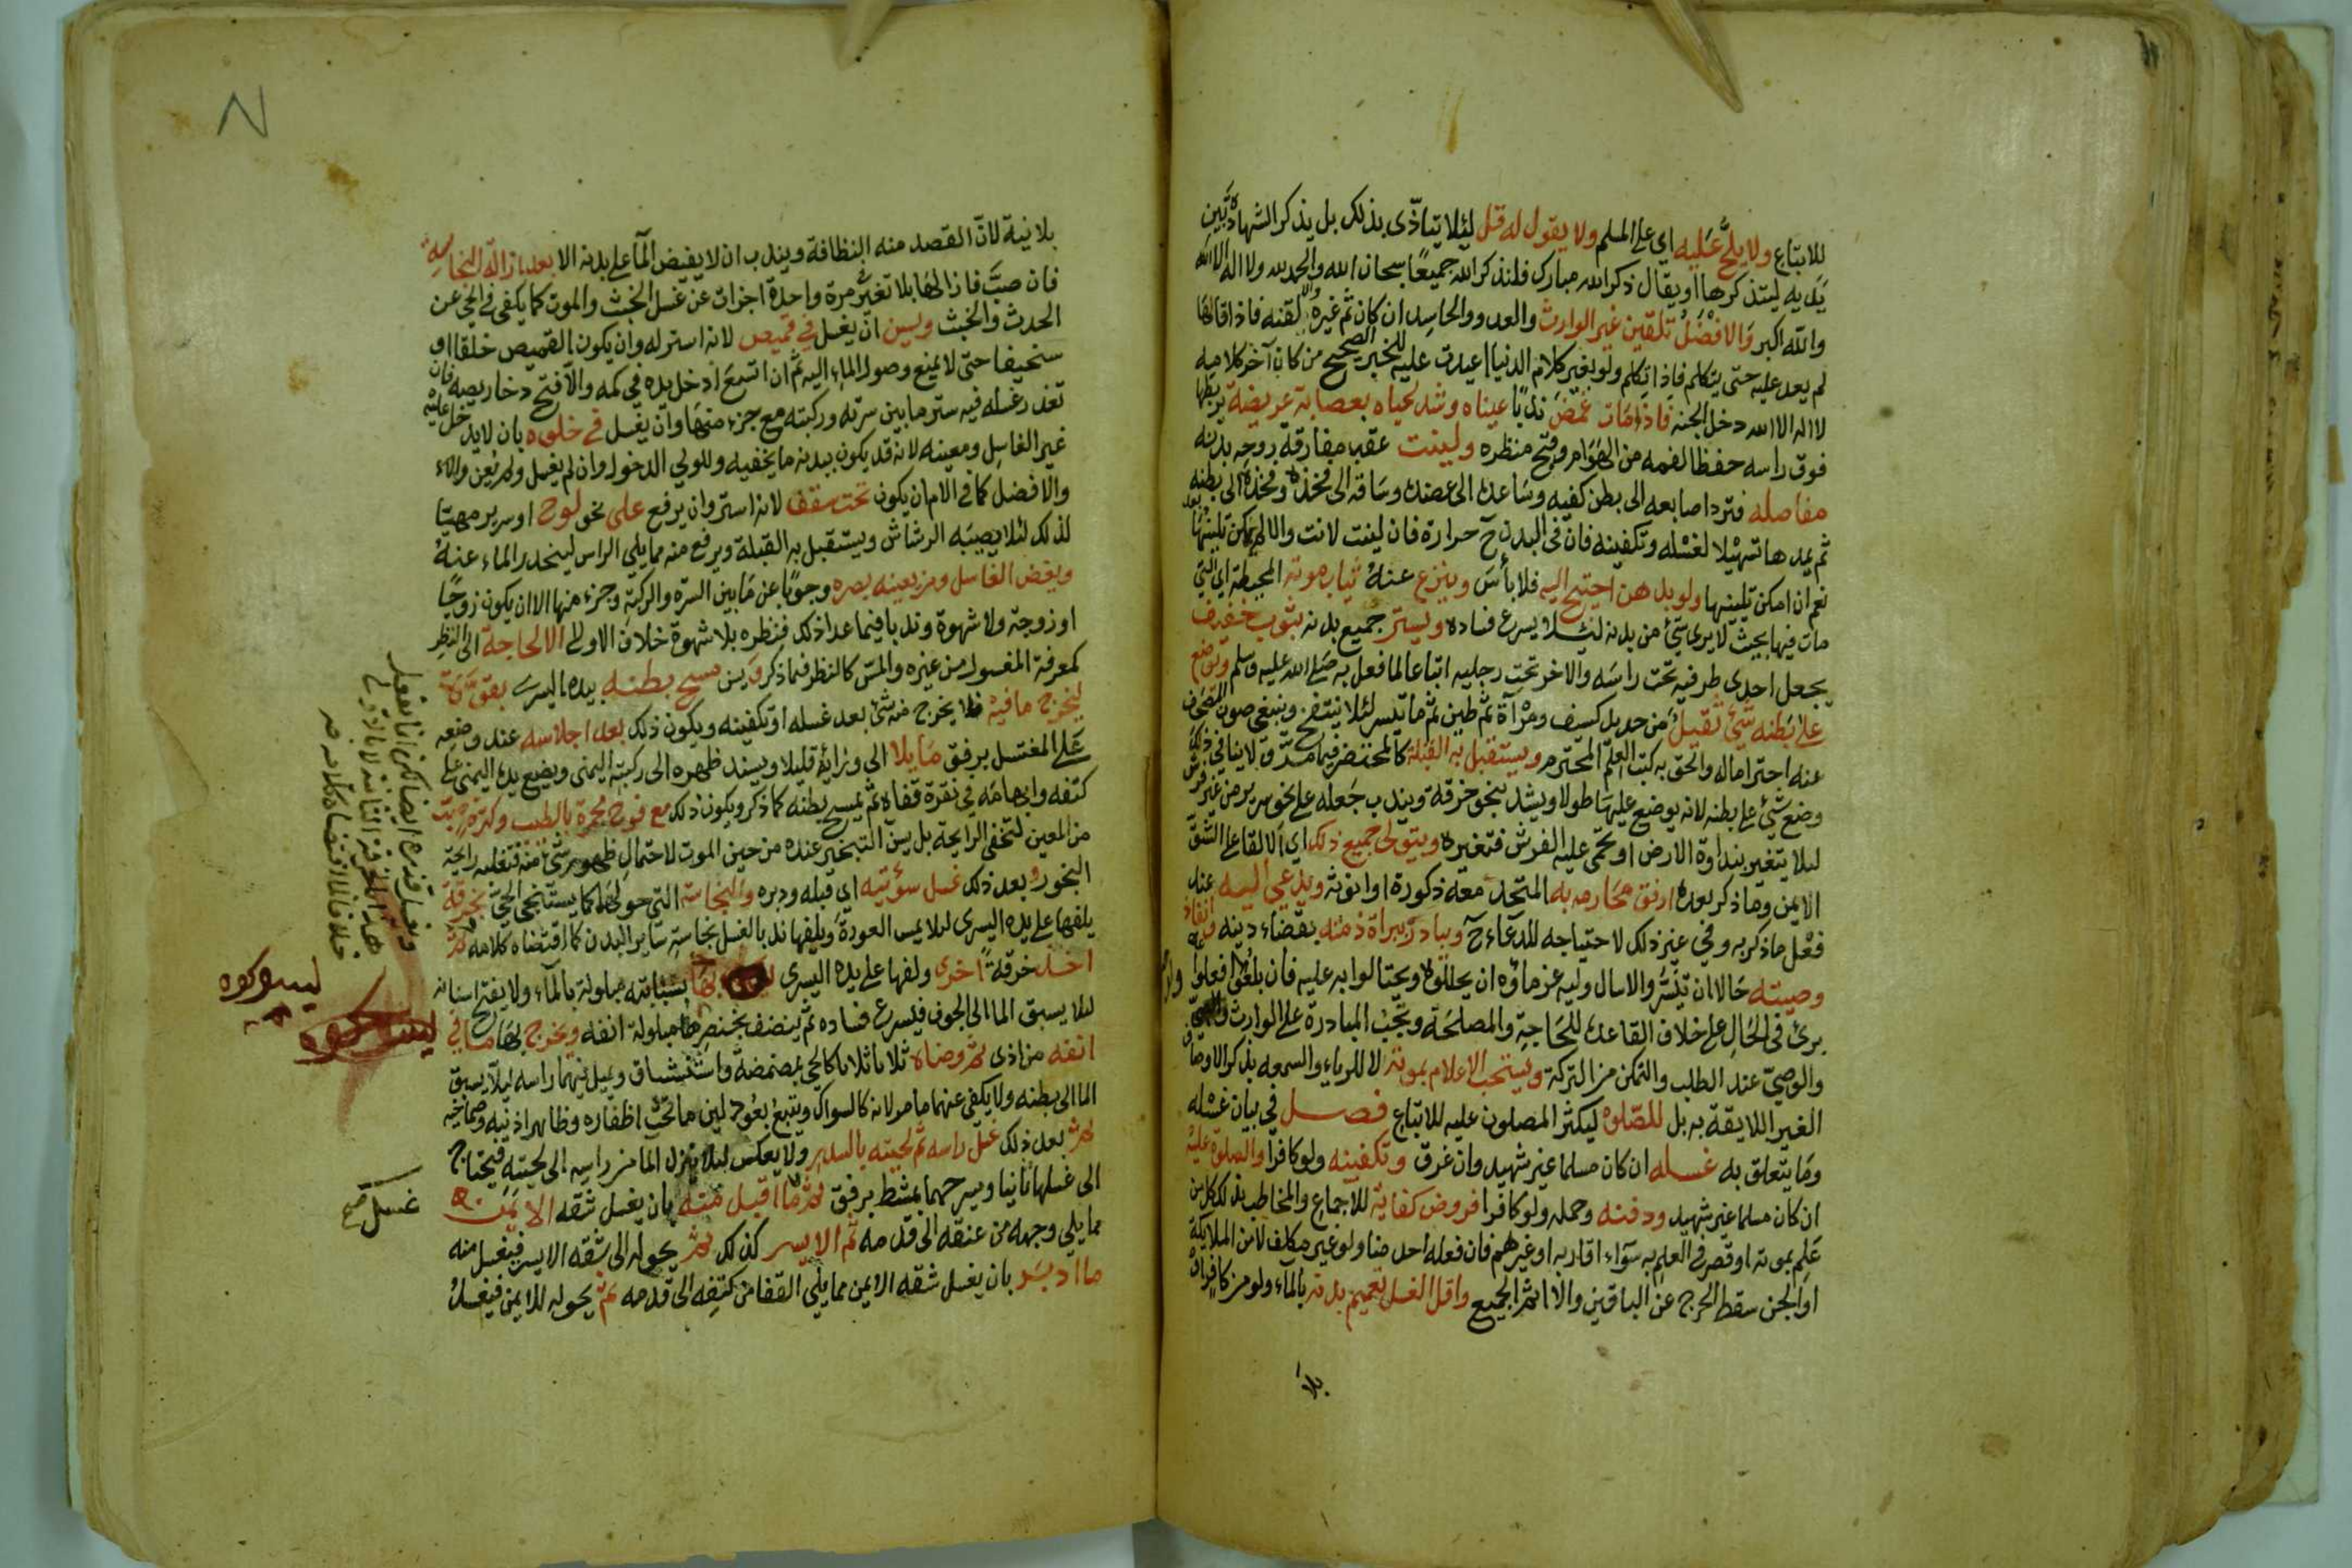 للاتباع ولا يلح عليه اي على المسلم ولا يقول له قل لئلا يتاذى بذلك بل يذكر الشهادتين
يديه ليتذكرها او يقال ذكر الله مبارك فلنذكر الله جميعا سبحان الله والحمد لله ولا اله الا الله
والله اكبر والافضل تلقين غير الوارث والعدو والحاسد ان كان ثم غيره لقنه فاذا قالها
لم يعد عليه حتى يتكلم فاذا تكلم ولو بغير كلام الدنيا اعيدت عليه للخبر الصحيح من كان آخر كلامه
لا اله الا الله دخل الجنة فاذا مات غمض ندبا عيناه وشد لحياه بعصابة عريضة يربطها
فوق راسه حفظا لفمه من الهوام وقبح منظره ولينت عقب مفارقة روحه بدنه
مفاصله فترد اصابعه الى بطن كفيه وساعده الى عضده وساقه الى فخذه وفخذه الى بطنه
ثم يمدها تسهيلا لغسله وتكفينه فان في البدن ح حرارة فان لينت لانت والا لم يمكن تليينها بعد
نعم ان امكن تليينها ولو بدهن احتيج اليه فلا بأس وينزع عنه ثياب موته المحيطة اي التي
مات فيها بحيث لا يرى شئ من بدنه لئلا يسرع فساده ويستر جميع بدنه بثوب خفيف
يجعل احدى طرفيه تحت راسه والاخر تحت رجليه اتباعا لما فعل به صلى الله عليه وسلم ويوضع
على بطنه شئ ثقيل من حديد كسيف ومرآة ثم طين ثم ما تيسر لئلا ينتفخ وينبغي صون المصحف
عنه احتراما له والحق به كتب العلم المحترم ويستقبل به القبلة كالمحتضر فيما مر ولا ينافي ذلك
وضع شئ على بطنه لانه يوضع عليها طولا ويشد بنحو خرقة ويندب جعله على نحو سرير من غير فرش
لئلا يتغير بنداوة الارض او يحمى عليه الفرش فتغيره ويتولى جميع ذلك اي الالقا على الشق
الايمن وما ذكر بعده ارفق محارمه به المتحد معه ذكورة او انوثة ويدعي اليه عند
فعل ما ذكر به وفي غير ذلك لاحتياجه للدعاء ح ويبادر ببراة ذمته بقضاء دينه وانفاذ
وصيته حالا ان تيسر والا سال وليه غرماؤه ان يحللوه ويحتالوا به عليه فان بلغوا فعلوا
برئ في الحال على خلاف القاعدة للحاجة والمصلحة وتجب المبادرة على الوارث
والوصي عند الطلب والتمكن من التركة ويستحب الاعلام بموته لا للرياء والسمعه بذكر الاوصاف
الغير اللايقة به بل للصلوة ليكثر المصلون عليه للاتباع فصل في بيان غسله
وما يتعلق به غسله ان كان مسلما غير شهيد وان غرق وتكفينه ولو كافرا والصلوة عليه
ان كان مسلما غير شهيد ودفنه وحمله ولو كافرا فروض كفاية للاجماع والمخاطب بذلك كل من
علم بموته او قصر في العلم به سواء اقاربه او غيرهم فان فعله احد منا ولو غير مكلف لا من الملايكة
او الجن سقط الحرج عن الباقين والا اثم الجميع واقل الغسل تعميم بدنه بالماء ولو من كافر
بلا
بلا نية لان القصد منه النظافة ويندب ان لا يفيض الما على بدنه الا بعد ازالة النجاسة
فان صب فازالها بلا تغير مرة واحدة اجزات عن غسل الخبث والموت كما يكفي في الحي عن
الحدث والخبث ويسن ان يغسل في قميص لانه استر له وان يكون القميص خلقا او
سخيفا حتى لا يمنع وصول الماء اليه ثم ان اتسع ادخل يده في كمه والا فتح دخاريصه فان
تعذر غسله فيه ستر ما بين سرته وركبته مع جزء منها وان يغسل في خلوة بان لا يدخل عليه
غير الغاسل ومعينه لانه قد يكون ببدنه ما يخفيه وللولي الدخول وان لم يغسل ولم يعن
والافضل كما في الام ان يكون تحت سقف لانه استر وان يرفع على نحو لوح او سرير مهيا
لذلك لئلا يصيبه الرشاش ويستقبل به القبلة ويرفع منه مما يلي الراس لينحدر الماء عنه
ويغض الغاسل ومن يعينه بصره وجوبا عن ما بين السرة والركبة وجزء منها الا ان يكون زوجا
او زوجة ولا شهوة وندبا فيما عدا ذلك فنظره بلا شهوة خلاف الاولى الا لحاجة الى النظر
كمعرفة المغسول من غيره والمس كالنظر فيما ذكر ويسن مسح بطنه بيده اليسرى بقوة
ليخرج ما فيه فلا يخرج منه شئ بعد غسله او تكفينه ويكون ذلك بعد اجلاسه عند وضعه
على المغتسل برفق مايلا الى ورائه قليلا ويسند ظهره الى ركبته اليمنى ويضع يده اليمنى على
كتفه وابهامه في نقرة قفاه ثم يمسح بطنه كما ذكر ويكون ذلك مع فوح مجمرة بالطيب وكثرة صب
من المعين لتخفى الرايحة بل يسن التبخير عنده من حين الموت لاحتمال ظهور شئ منه فتغلبه رايحة
البخور وبعد ذلك غسل سؤتيه اي قبله ودبره والنجاسة التي حولهما كما يستنجي الحي بخرقة
يلفها على يده اليسرى لئلا يمس العورة ويلفها ندبا لغسل نجاسة ساير البدن كما اقتضاه كلامه ثم
اخذ خرقة اخرى ولفها على يده اليسرى بها بسبابته مبلولة بالماء ولا يفتح اسنانه
لئلا يسبق الما الى الجوف فيسرع فساده ثم ينضف بخنصرها مبلولة انفه ويخرج بها ما في
انفه من اذى ثم وضاه ثلاثا ثلاثا كالحي بمضمضة واستنشاق ويميل فيهما راسه لئلا يسبق
الما الى بطنه ولا يكفي عنهما ما مر لانه كالسواك ويتبع بعود لين ما تحت اظفاره وظاهر اذنيه وصماخيه
ثم بعد ذلك غسل راسه ثم لحيته بالسدر ولا يعكس لئلا ينزل الما من راسه الى لحيته فيحتاج
الى غسلها ثانيا ويسرحهما بمشط برفق ثم ما اقبل منه بان يغسل شقه الايمن
مما يلي وجهه من عنقه الى قدمه ثم الايسر كذلك ثم يحوله الى شقه الايسر فيغسل منه
ما ادبر بان يغسل شقه الايمن مما يلي القفا من كتفه الى قدمه ثم يحوله للايمن فيغسل
ليسوكوه
غسل صح